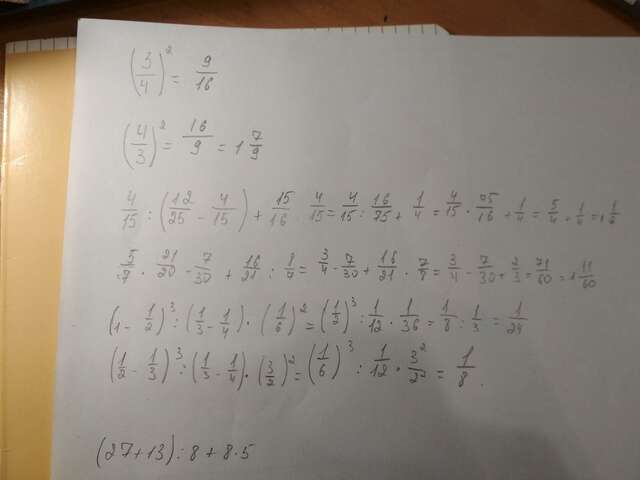 (3/4)² = 9/16
(4/3)² = 16/9 = 1 7/9
4/15 : (12/25 - 4/15) + 15/16 · 4/15 = 4/15 : 16/75 + 1/4 = 4/15 · 75/16 + 1/4 = 5/4 +
5/7 · 21/20 - 7/30 + 16/21 : 8/7 = 3/4 - 7/30 + 16/21 · 7/8 = 3/4 - 7/30 + 2/3 = 71/60 = 1 11/60
(1 - 1/2)³ : (1/3 - 1/4) · (1/6)² = (1/2)³ : 1/12 · 1/36 = 1/8 : 1/3 = 1/24
(1/2 - 1/3)³ : (1/3 - 1/4) · (3/2)² = (1/6)³ : 1/12 · 3²/2² = 1/8
(27+13) : 8 + 8 · 5